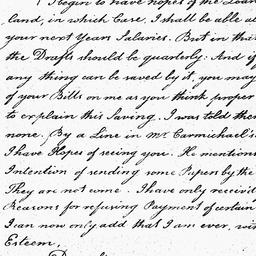 I begin to have hopes of the Loan
land, in which Case, I shall be able a
your next Years Salaries. But in that
the Drafts should be quarterly: And if
any thing can be saved by it, you may
of your Bills on me as you think proper
to explain this Saving. I was told ther
none. By a Line in Mr Carmichael's
I have Hopes of seeing you. He mentions
Intention of sending some Papers by the
They are not come. I have only receiv'd
Reasons for refusing Payment of certain
I can now only add that I am ever, wit
Esteem,